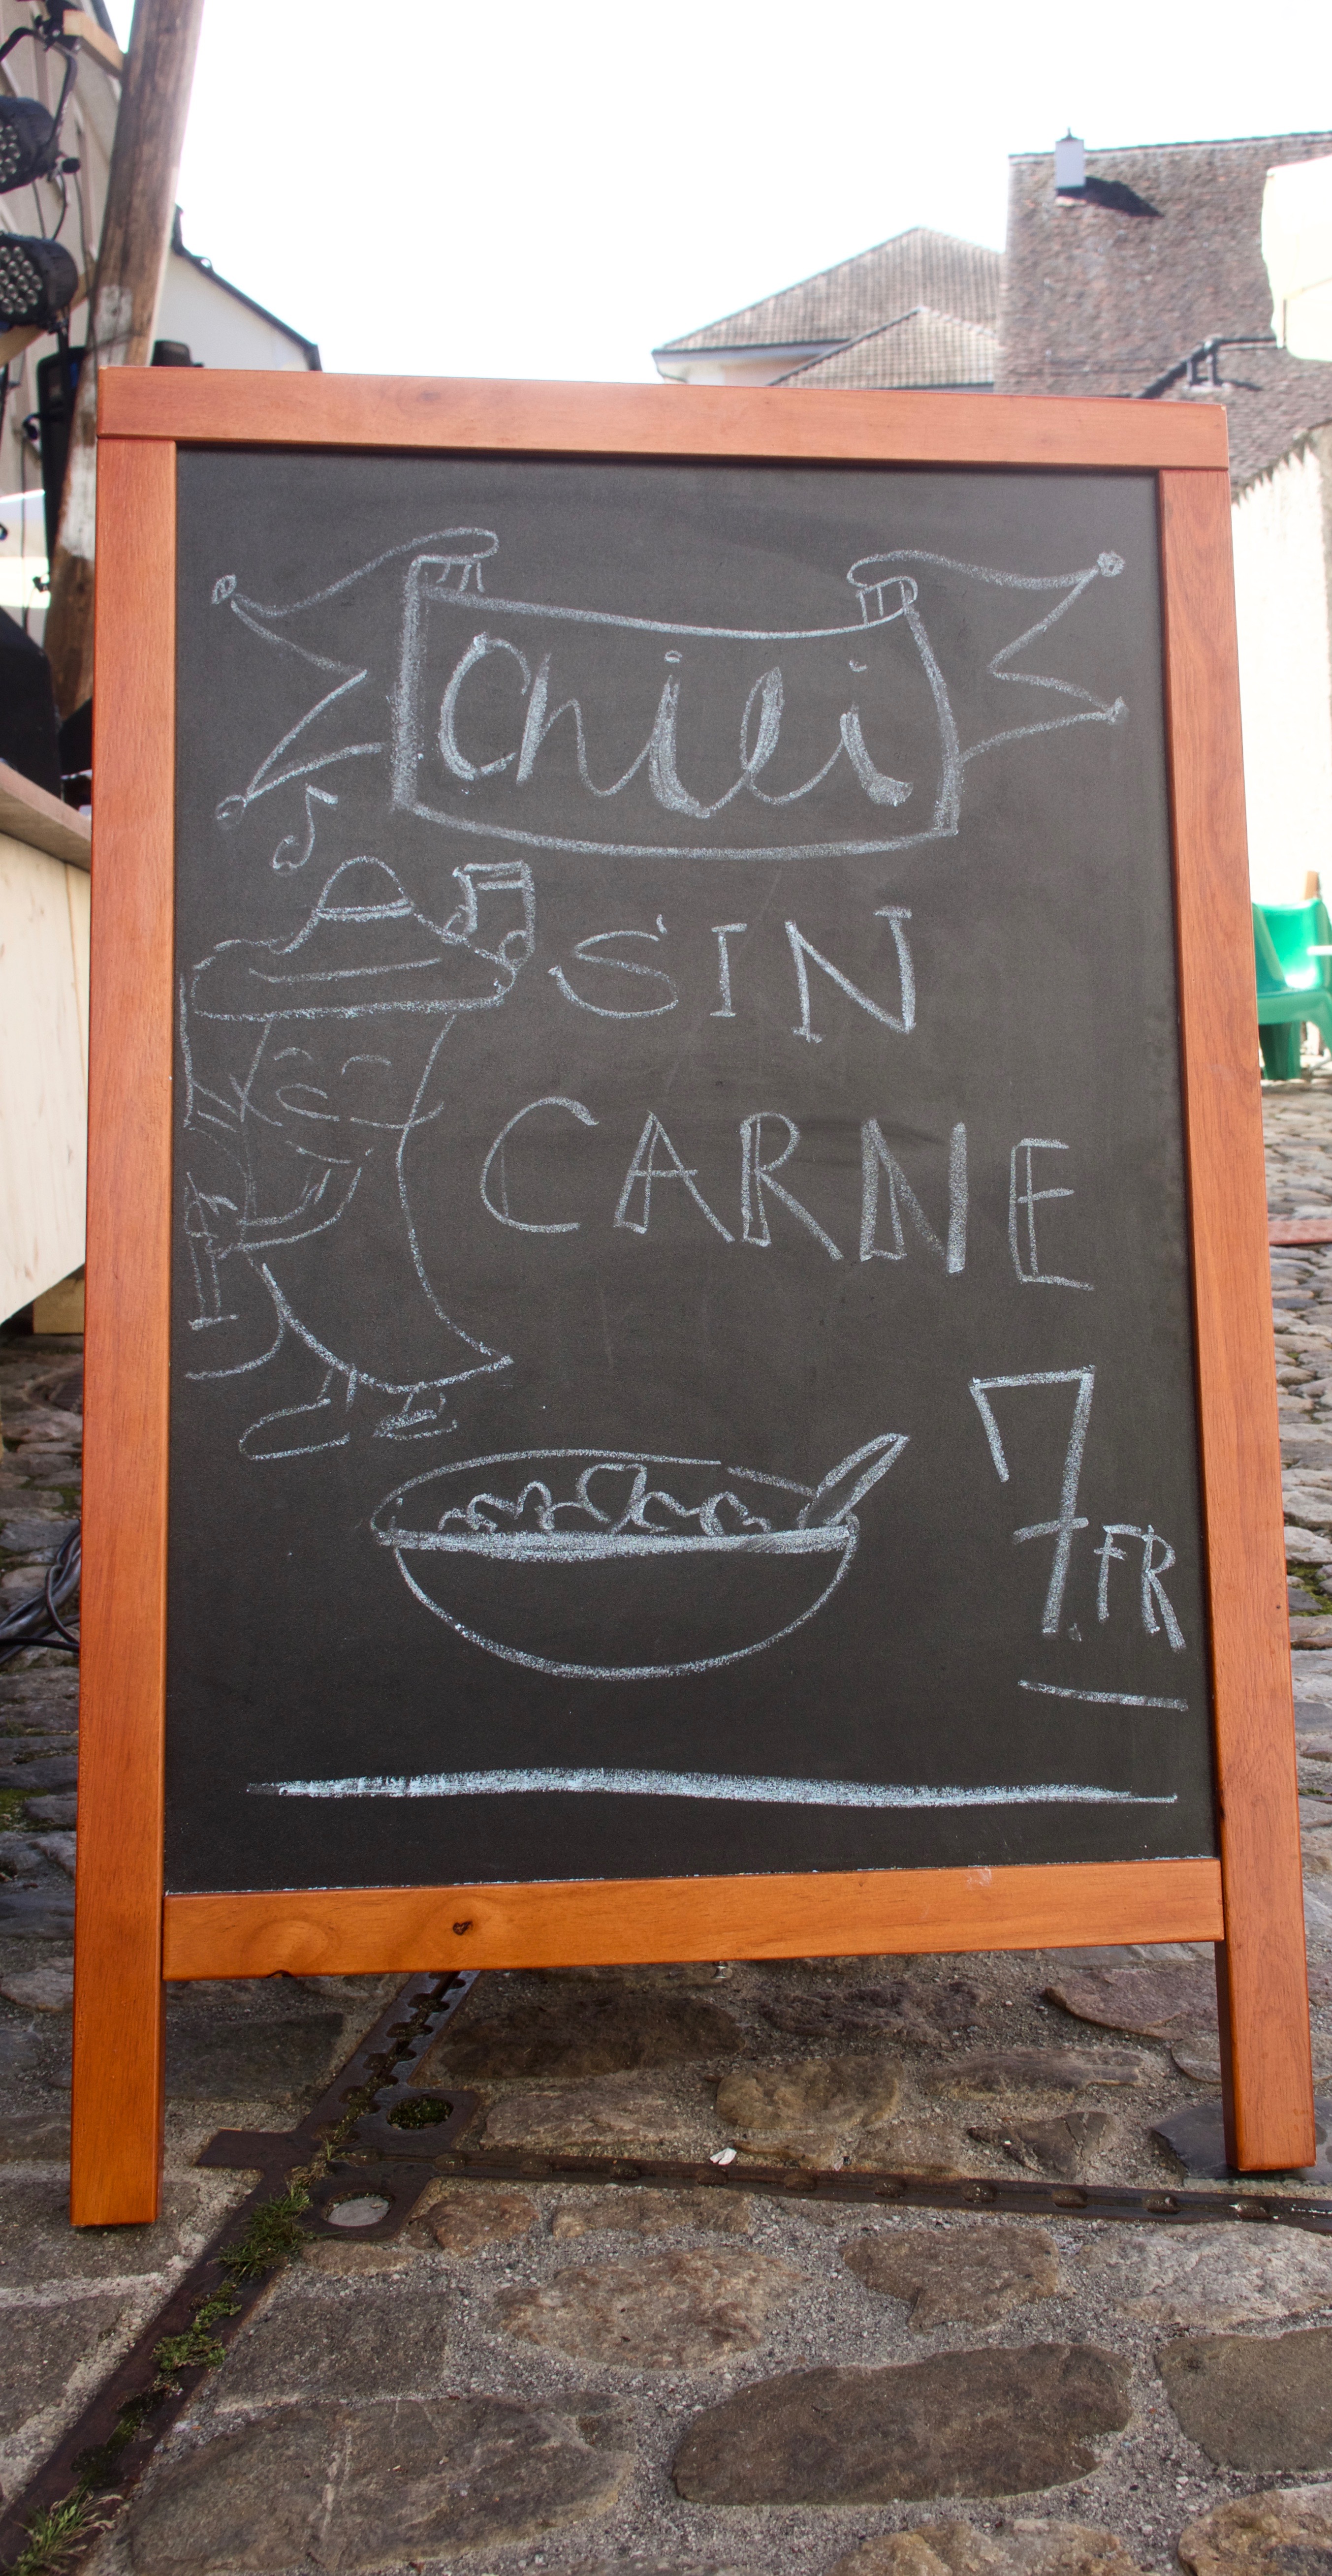 Chili
SIN
CARNE
7.FR